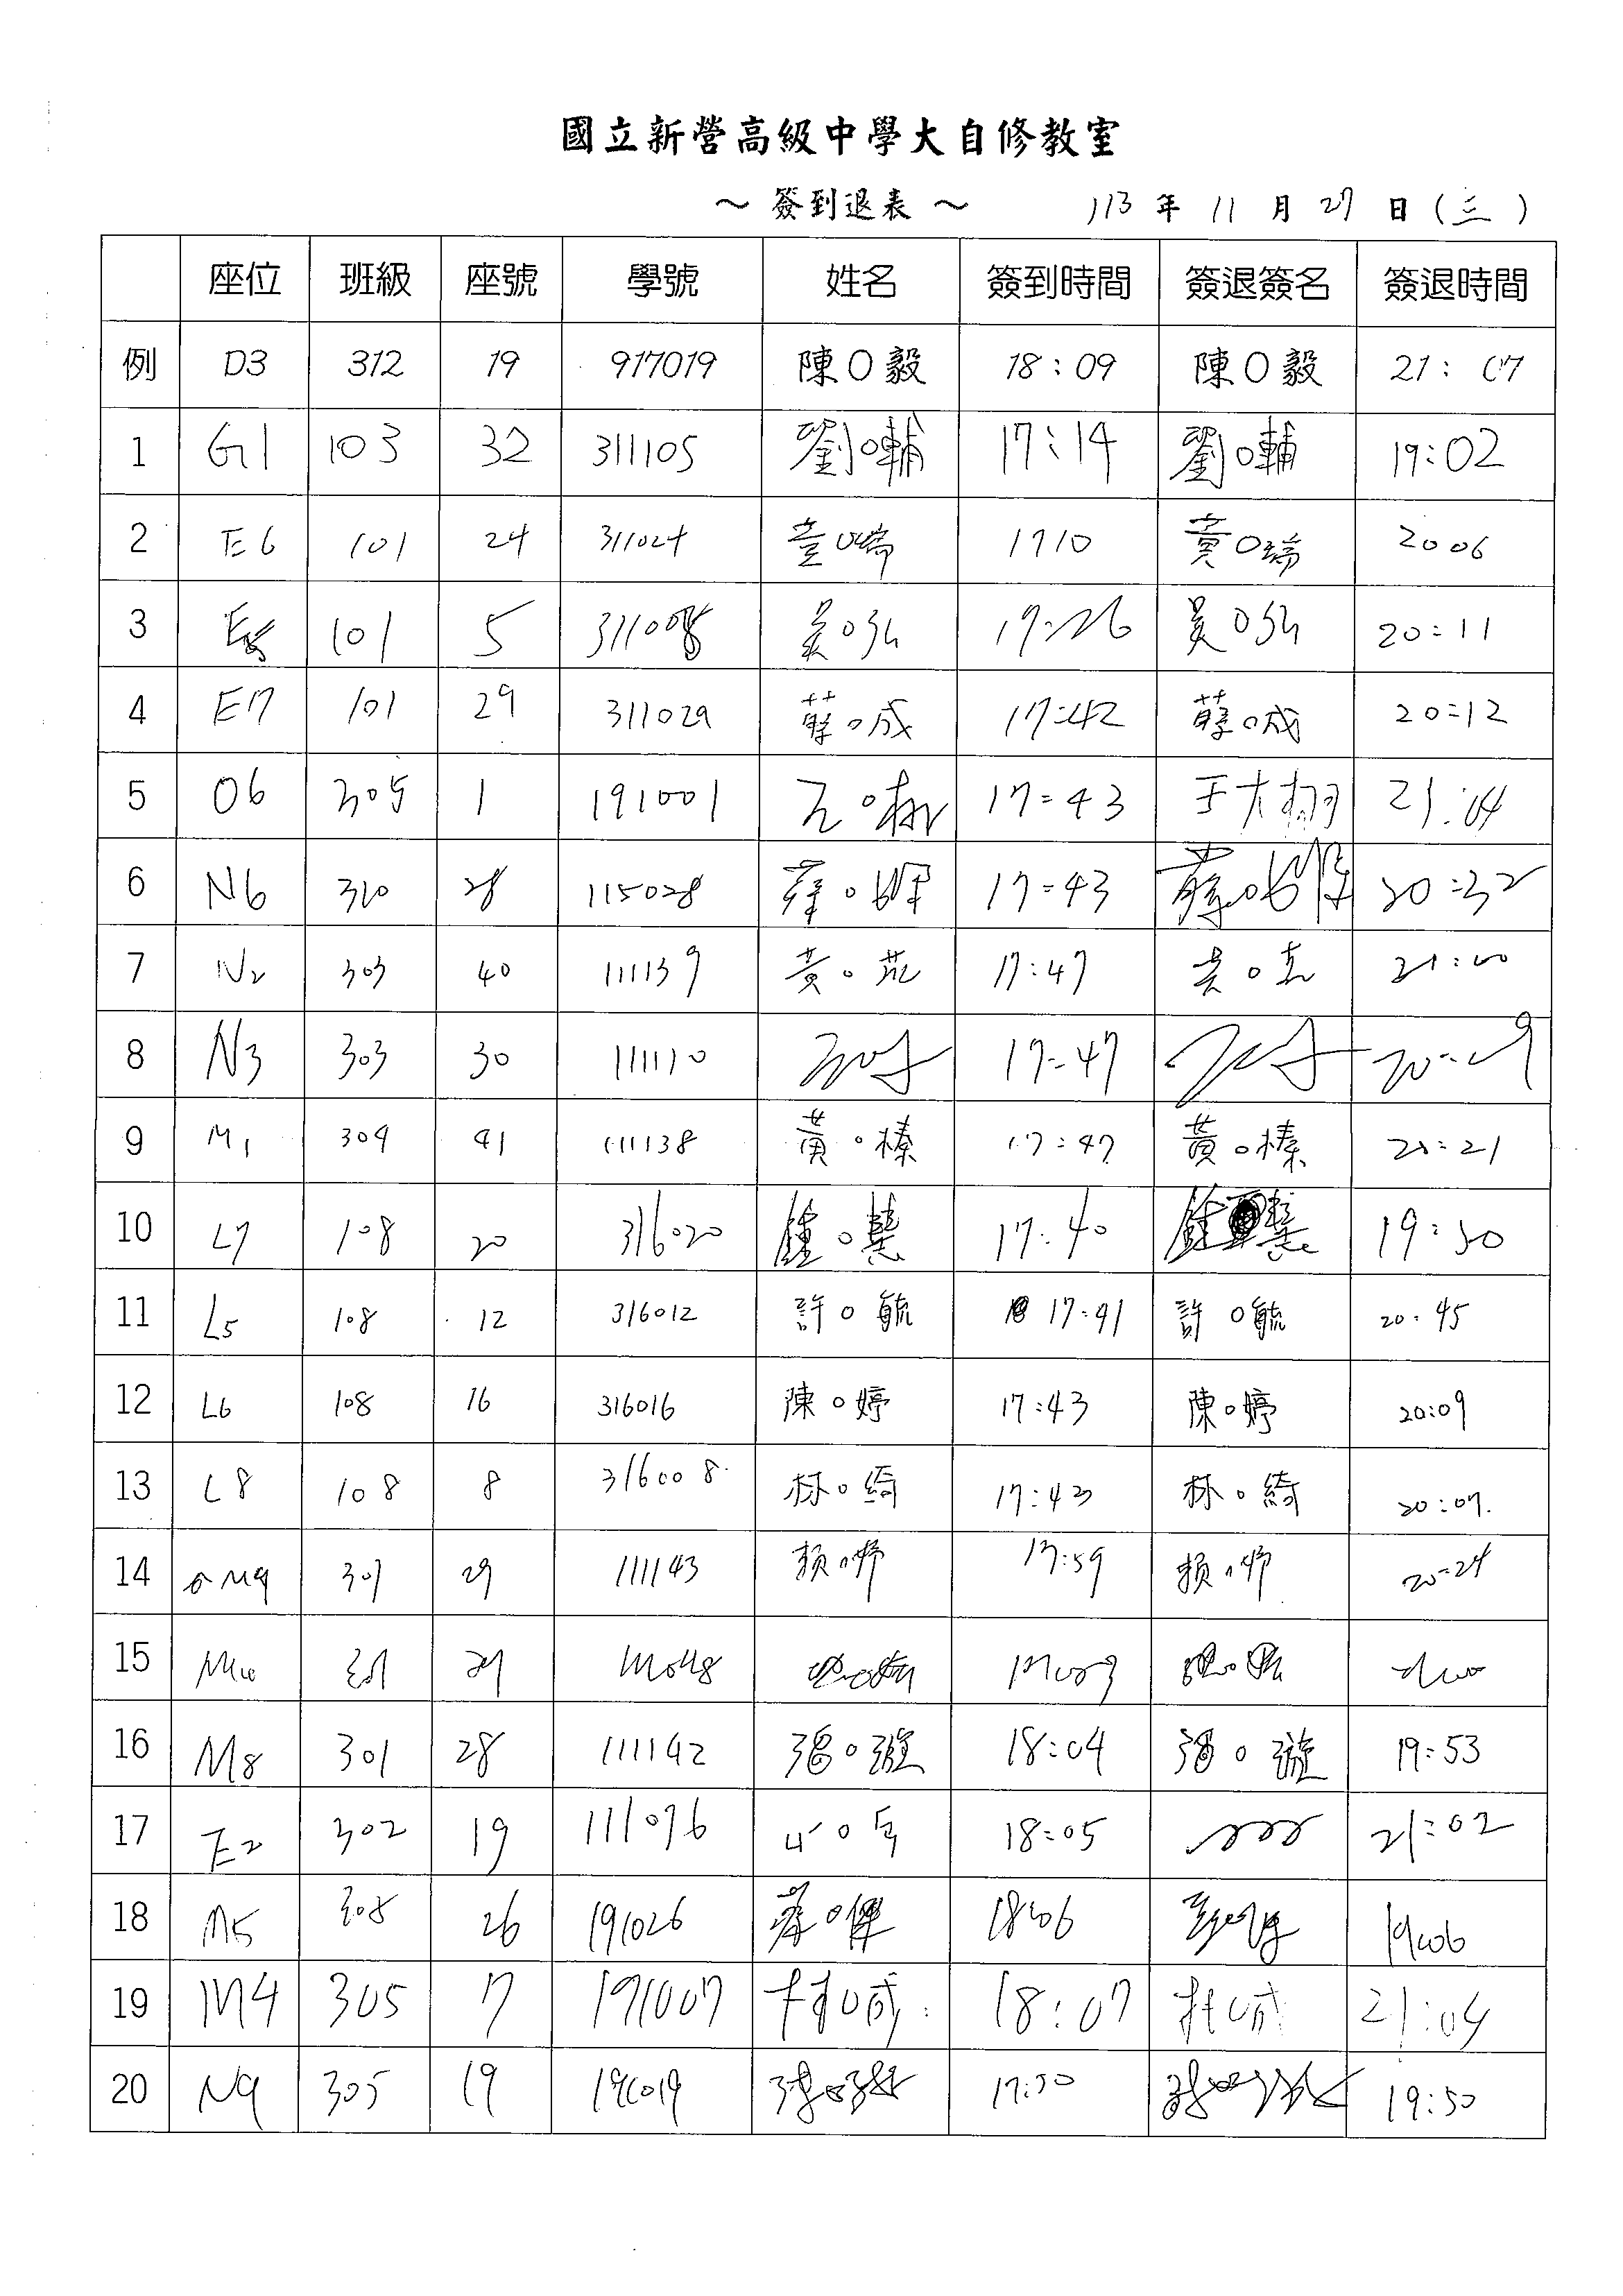 國立新營高級中學大自修教室
～ 簽到退表 ～ 113 年 11 月 27 日 (三)
座位 班級 座號 學號 姓名 簽到時間 簽退簽名 簽退時間
例 D3 312 19 917019 陳○毅 18:09 陳○毅 21:07
1 G1 103 32 311105 劉○輔 17:14 劉○輔 19:02
2 E6 101 24 311024 黃○瑞 1710 黃○瑞 2006
3 101 5 吳○弘 17:26 吳○弘 20:11
4 E7 101 29 311029 蔡○成 17:42 蔡○成 20:12
5 O6 305 1 191001 17:43 21:04
6 N6 310 28 115028 17:43 20:32
7 N2 303 40 111139 黃○ 17:47 21:00
8 N3 303 30 111110 17:47 20:09
9 M1 304 41 111138 黃○榛 17:47 黃○榛 20:21
10 L7 108 20 316020 鍾○慧 17:40 19:50
11 L5 108 12 316012 許○毓 17:41 許○毓 20:45
12 L6 108 16 316016 陳○婷 17:43 陳○婷 20:09
13 L8 108 8 316008 林○綺 17:43 林○綺 20:07
14 M9 301 29 111143 賴○ 17:59 賴○ 20:24
15
16 M8 301 28 111142 張○璇 18:04 張○璇 19:53
17 E2 302 19 111076 18:05 21:02
18 M5 308 26 191026 蔡○ 1806 1906
19 M4 305 7 191007 ○成 18:07 杜○成 21:04
20 N9 305 19 191019 17:50 19:50